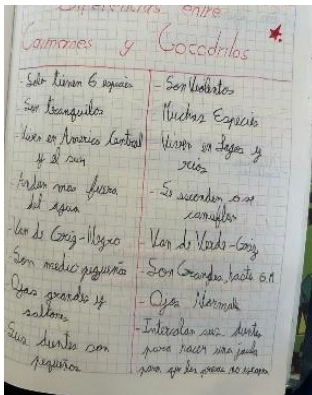 Diferencias entre
Caimanes y Cocodrilos
- Solo tienen 6 especies
- Son tranquilos
- Viven en America Central
y el sur
- Andan mas fuera
del agua
- Van de Gris-Negro
- Son medio pequeños
- Ojos grandes y
saltones
- Sus dientes son
pequeños
- Son Violentos
Muchas Especies
Viven en Lagos y
rios
- Se esconden o se
camuflan
- Van de Verde-Gris
- Son Grandes, hasta 6 M
- Ojos Normales
- Intercalan sus dientes
para hacer una jaula
para que las presas no escapen